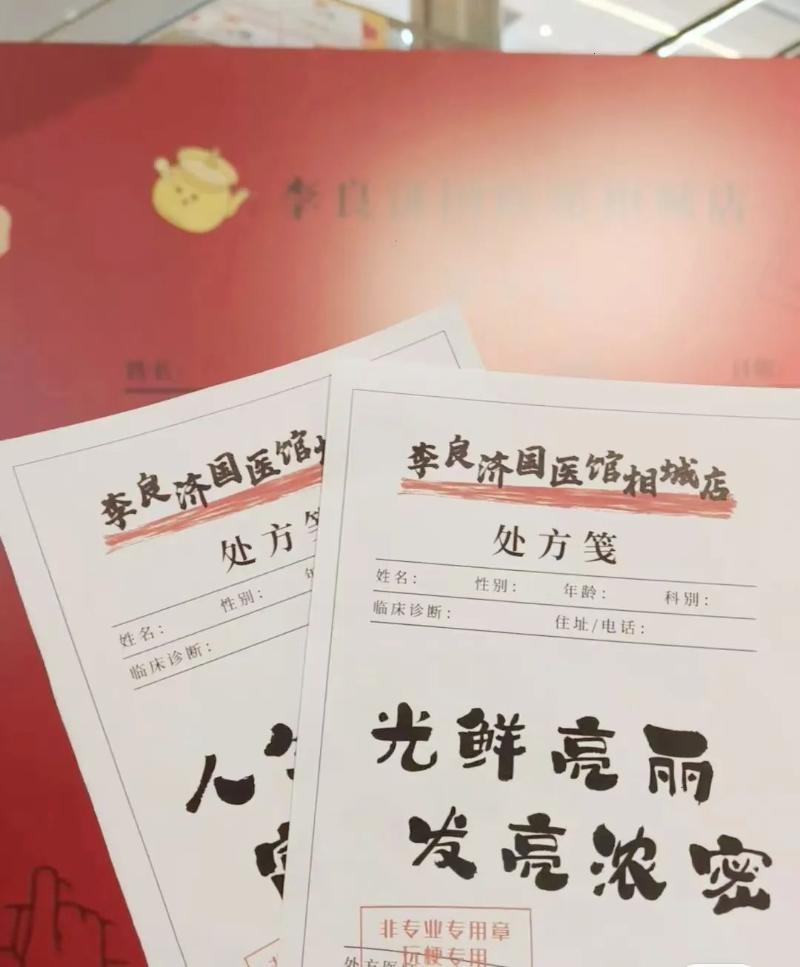 李良济国医馆相城店
姓名：
李良济国医馆
处方
姓名： 性别：
临床诊断：
人
李良济国医馆相城店
处方笺
姓名： 性别： 年龄： 科别：
临床诊断： 住址/电话：
光鲜亮丽
发亮浓密
非专业专用章
玩梗专用
处方医